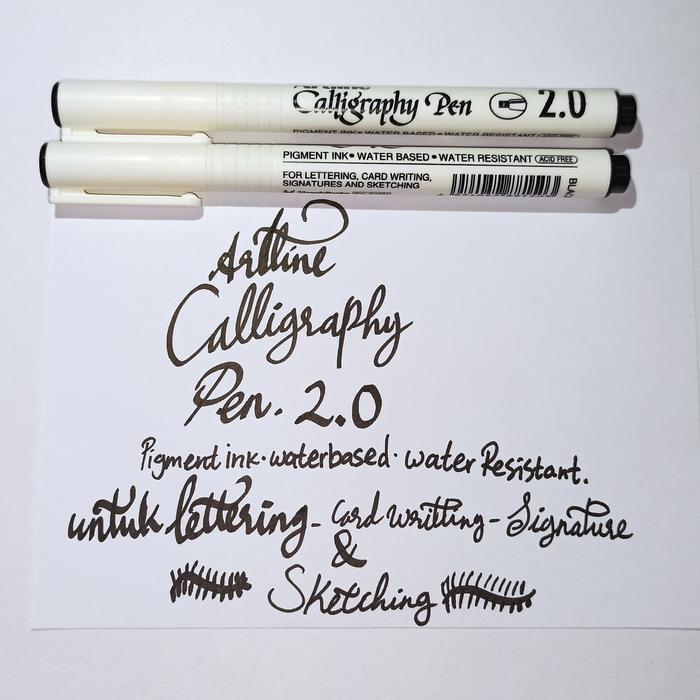 Artline
Calligraphy Pen 2.0
PIGMENT INK • WATER BASED • WATER RESISTANT
PIGMENT INK • WATER BASED • WATER RESISTANT ACID FREE
FOR LETTERING, CARD WRITING,
SIGNATURES AND SKETCHING
Artline
Calligraphy
Pen. 2.0
Pigment ink · waterbased · water Resistant.
untuk lettering - Card writting - Signature
&
Sketching